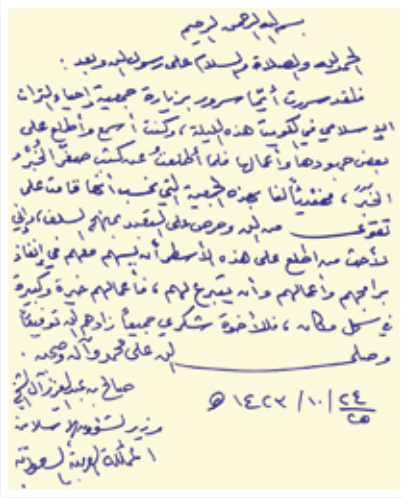 بسم الله الرحمن الرحيم
الحمد لله والصلاة والسلام على رسول الله وبعد :
فلقد سررت أيما سرور بزيارة جمعية إحياء التراث
الإسلامي في الكويت هذه الليلة ، وكنت أسمع وأطلع على
بعض جهودها وأعمالها فلما أطلعت عن كثب صغر الخُبْر
الخَبَر ، فهنيئاً لنا بهذه الجمعية التي نحسب أنها قامت على
تقوى من الله وحرص على التقيد بمنهج السلف ، وإني
لأحث من اطلع على هذه الأسطر أن يسهم معهم في إنفاذ
برامجهم وأعمالهم وأن يتبرع لهم ، فأعمالهم خيرة وكبيرة
في كل مكان ، فللأخوة شكري جميعاً زادهم الله توفيقاً
وصلى الله على محمد وآله وصحبه .
صالح بن عبدالعزيز آل الشيخ
٢٤ / ١٠ / ١٤٢٣ هـ
وزير الشؤون الإسلامية
المملكة العربية السعودية